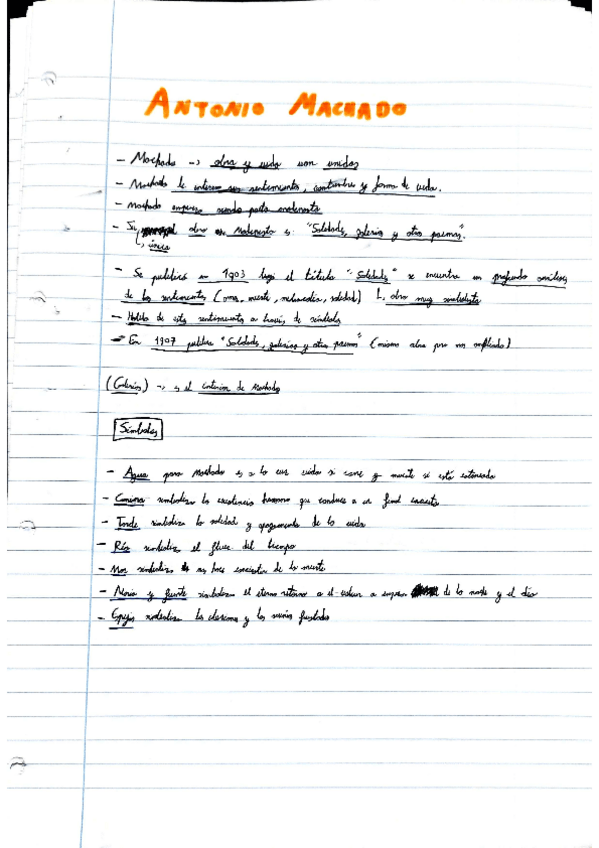 ANTONIO MACHADO
- Machado -> obra y vida van unidos
- Machado le interesa sus sentimientos, costumbres y forma de vida.
- Machado empieza siendo poeta modernista
- Su obra modernista es "Soledades, galerías y otros poemas".
única
- Se publica en 1903 bajo el título "Soledades" se encuentra un profundo análisis
de los sentimientos (amor, muerte, melancolía, soledad) obra muy modernista
- Habla de estos sentimientos a través de símbolos
- En 1907 publica "Soledades, galerías y otros poemas" (misma obra pero ampliada)
(Galerías) -> es el interior de Machado
Símbolos
- Agua para Machado es a la vez vida si corre y muerte si está estancada
- Camino simboliza la existencia humana que conduce a un final incierto
- Tarde simboliza la soledad y apagamiento de la vida
- Río simboliza el fluir del tiempo
- Mar simboliza nos hace conscientes de la muerte
- Noria y fuente simbolizan el eterno retorno a el volver a empezar de la noche y el día
- Espejo simboliza los y los sueños frustrados